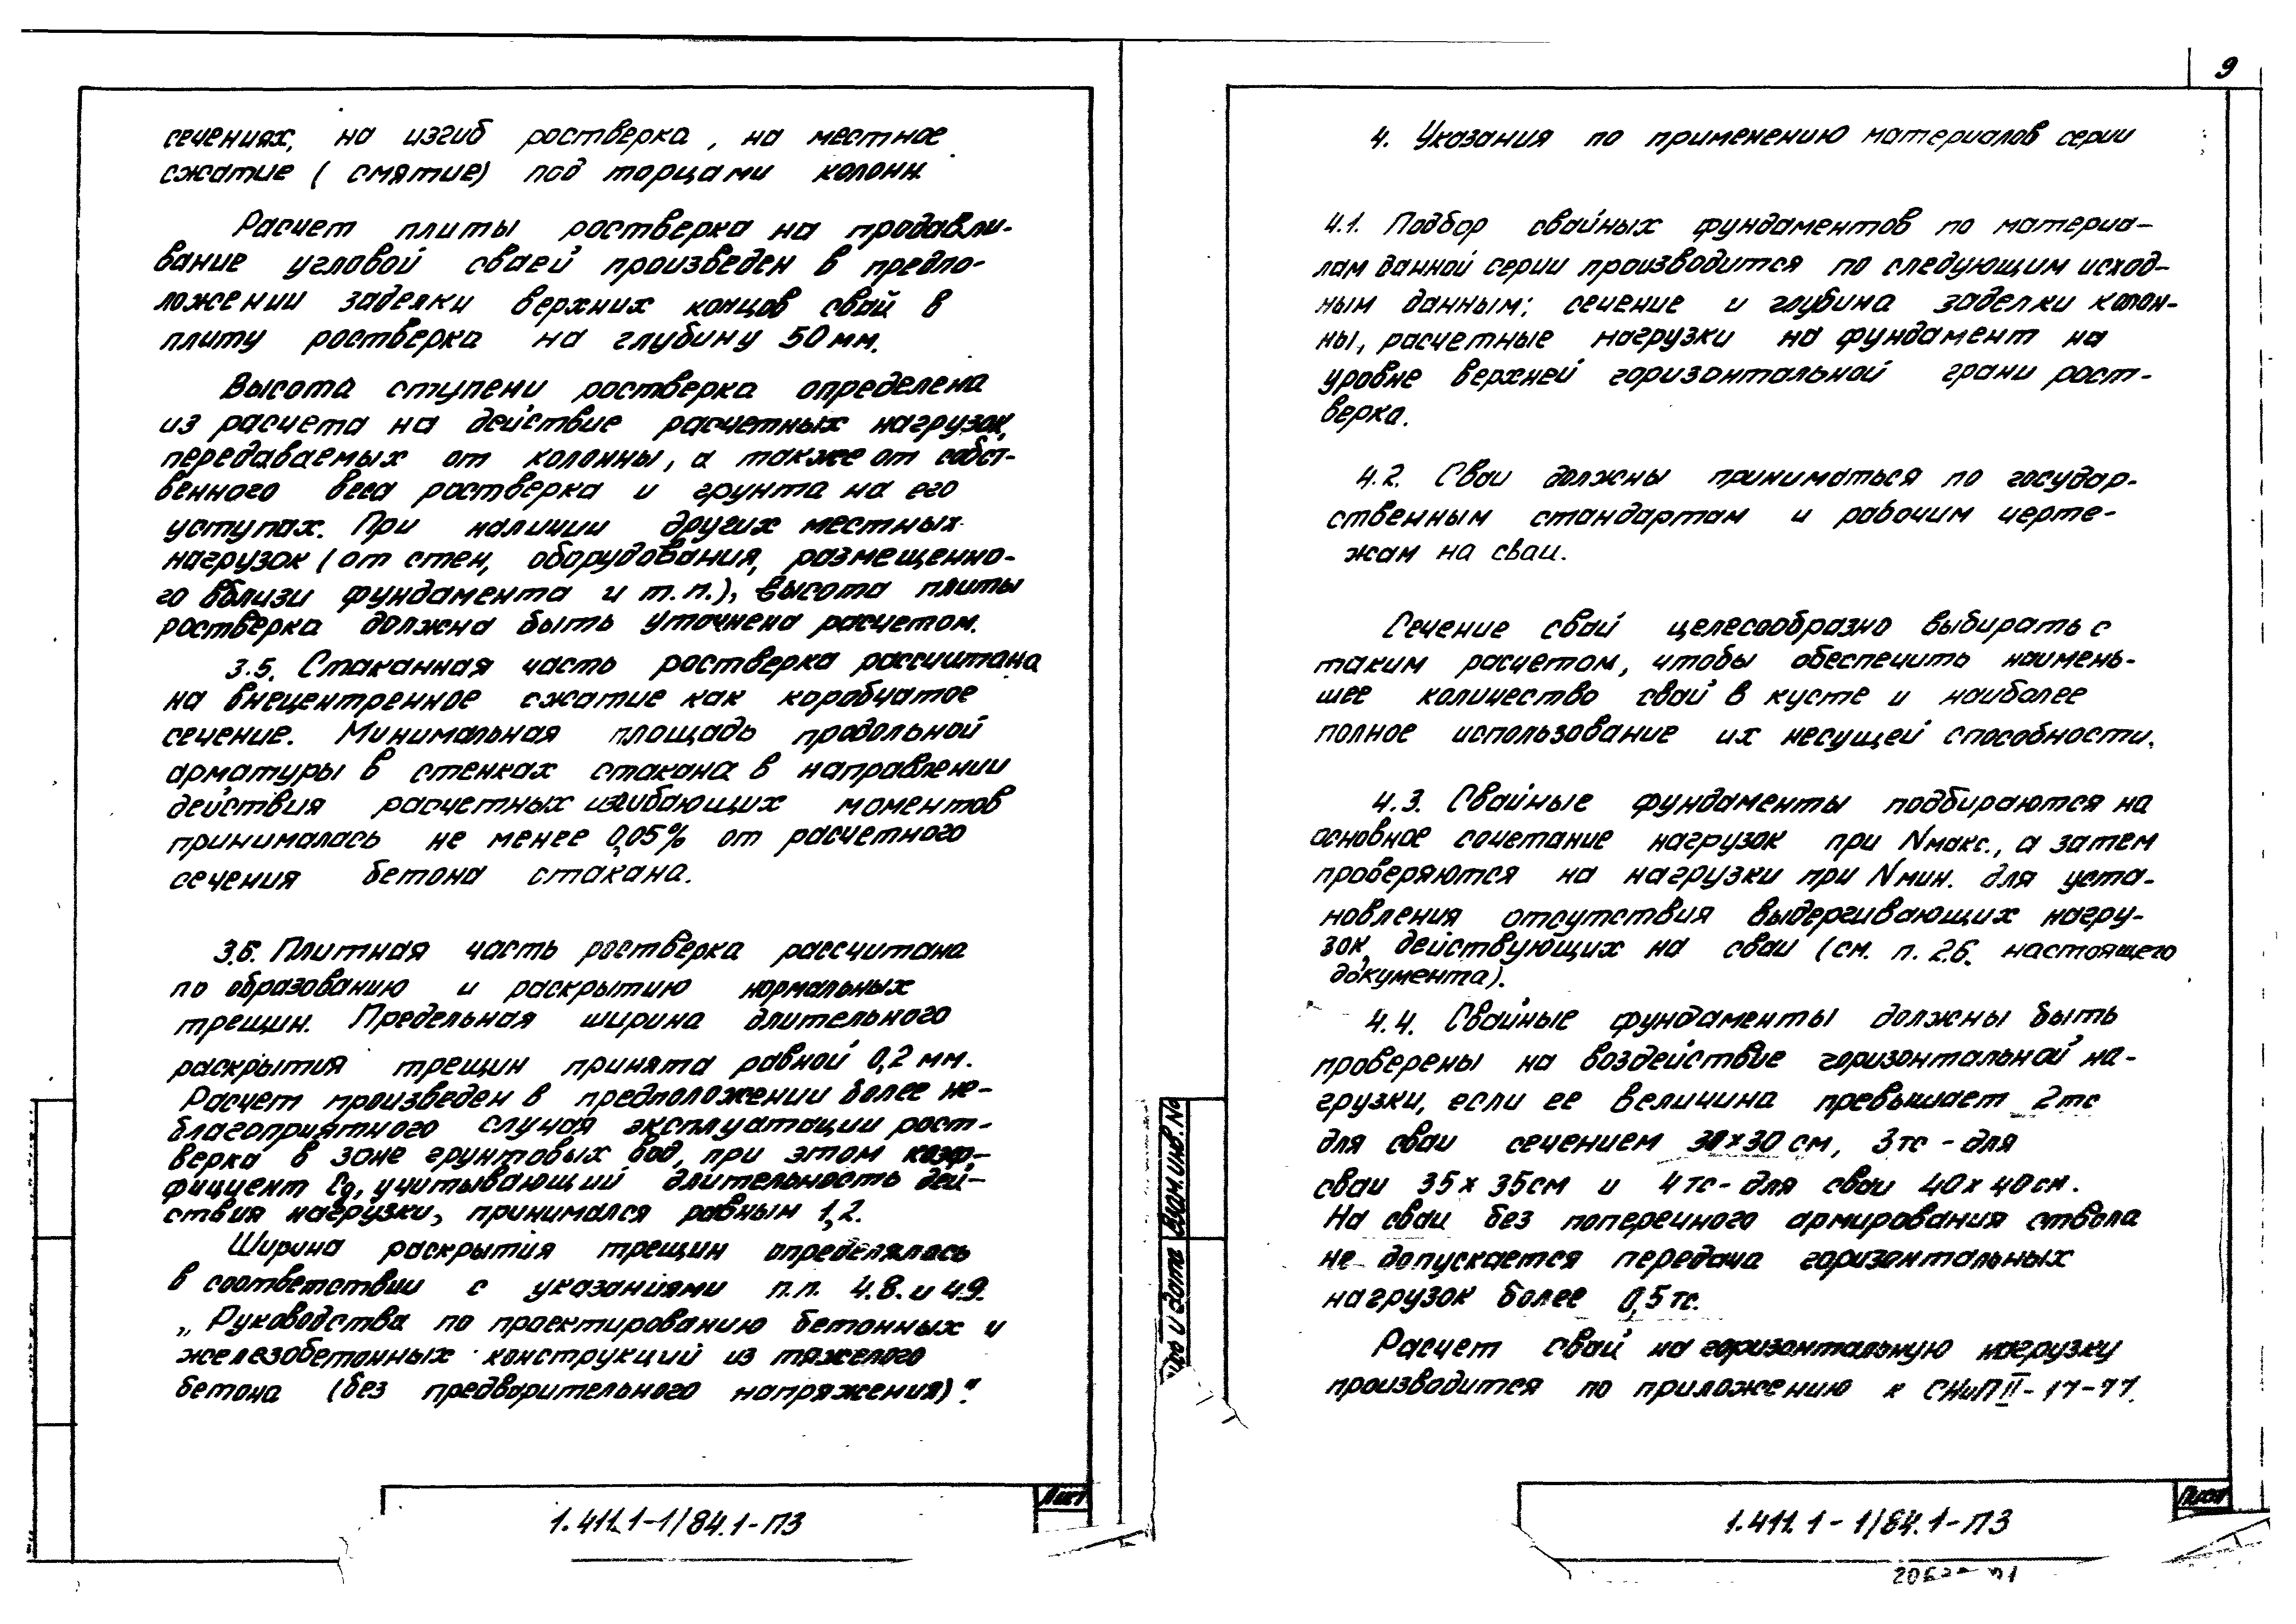 сечениях, на изгиб ростверка, на местное
сжатие (смятие) под торцами колонн.
Расчет плиты ростверка на продавли-
вание угловой сваей произведен в предпо-
ложении заделки верхних концов свай в
плиту ростверка на глубину 50 мм.
Высота ступени ростверка определена
из расчета на действие расчетных нагрузок,
передаваемых от колонны, а также от собст-
венного веса ростверка и грунта на его
уступах. При наличии других местных
нагрузок (от стен, оборудования, размещенно-
го вблизи фундамента и т.п.), высота плиты
ростверка должна быть уточнена расчетом.
3.5. Стаканная часть ростверка рассчитана
на внецентренное сжатие как коробчатое
сечение. Минимальная площадь продольной
арматуры в стенках стакана в направлении
действия расчетных изгибающих моментов
принималась не менее 0,05% от расчетного
сечения бетона стакана.
3.6. Плитная часть ростверка рассчитана
по образованию и раскрытию нормальных
трещин. Предельная ширина длительного
раскрытия трещин принята равной 0,2 мм.
Расчет произведен в предположении более не-
благоприятного случая эксплуатации рост-
верка в зоне грунтовых вод, при этом коэф-
фициент Cд, учитывающий длительность дей-
ствия нагрузки, принимался равным 1,2.
Ширина раскрытия трещин определялась
в соответствии с указаниями п.п. 4.8. и 4.9.
„Руководства по проектированию бетонных и
железобетонных конструкций из тяжелого
бетона (без предварительного напряжения)".
1.411.1-1/84.1-ПЗ
Лист
9
4. Указания по применению материалов серии
4.1. Подбор свайных фундаментов по материа-
лам данной серии производится по следующим исход-
ным данным: сечение и глубина заделки колон-
ны, расчетные нагрузки на фундамент на
уровне верхней горизонтальной грани рост-
верка.
4.2. Сваи должны приниматься по государ-
ственным стандартам и рабочим черте-
жам на сваи.
Сечение свай целесообразно выбирать с
таким расчетом, чтобы обеспечить наимень-
шее количество свай в кусте и наиболее
полное использование их несущей способности.
4.3. Свайные фундаменты подбираются на
основное сочетание нагрузок при Nмакс., а затем
проверяются на нагрузки при Nмин. для уста-
новления отсутствия выдергивающих нагру-
зок, действующих на сваи (см. п. 2.6. настоящего
документа).
4.4. Свайные фундаменты должны быть
проверены на воздействие горизонтальной на-
грузки, если ее величина превышает 2тс
для сваи сечением 30×30 см, 3тс - для
сваи 35×35см и 4тс- для сваи 40×40см.
На сваи без поперечного армирования ствола
не допускается передача горизонтальных
нагрузок более 0,5тс.
Расчет свай на горизонтальную нагрузку
производится по приложению к СНиП II-17-77.
Взам.инв.№
и дата
1.411.1-1/84.1-ПЗ
Лист